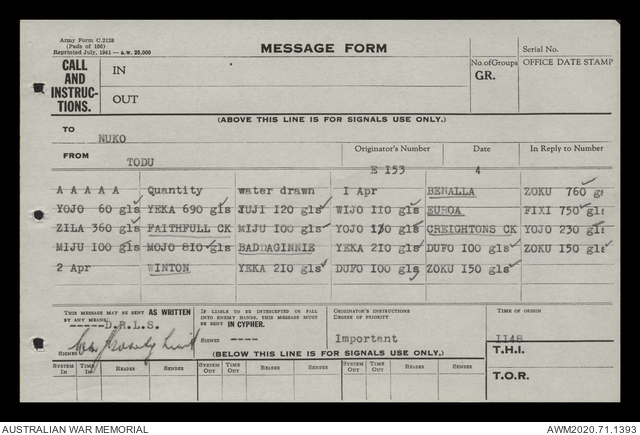 Army Form C.2128
(Pads of 100)
Reprinted July, 1941—a.w. 25,000
MESSAGE FORM
Serial No.
CALL AND INSTRUC-TIONS.
IN
OUT
No. of Groups
GR.
OFFICE DATE STAMP
(ABOVE THIS LINE IS FOR SIGNALS USE ONLY.)
TO
NUKO
FROM
TODU
Originator's Number
Date
In Reply to Number
E 153
4
A A A A A Quantity water drawn 1 Apr BENALLA ZOKU 760 gls
YOJO 60 gls YEKA 690 gls JUJI 120 gls WIJO 110 gls EUROA FIXI 750 gls
ZILA 360 gls FAITHFULL CK MIJU 100 gls YOJO 130 gls CREIGHTONS CK YOJO 230 gls
MIJU 100 gls MOJO 810 gls BADDAGINNIE YEKA 210 gls DUFO 100 gls ZOKU 150 gls
2 Apr WINTON YEKA 210 gls DUFO 100 gls ZOKU 150 gls
THIS MESSAGE MAY BE SENT AS WRITTEN BY ANY MEANS.
-----D.R.L.S.
SIGNED
IF LIABLE TO BE INTERCEPTED OR FALL INTO ENEMY HANDS, THIS MESSAGE MUST BE SENT IN CYPHER.
SIGNED ----
ORIGINATOR'S INSTRUCTIONS
DEGREE OF PRIORITY
Important
TIME OF ORIGIN
1148
(BELOW THIS LINE IS FOR SIGNALS USE ONLY.)
T.H.I.
T.O.R.
SYSTEM IN TIME IN READER SENDER SYSTEM OUT TIME OUT READER SENDER SYSTEM OUT TIME OUT READER SENDER
AUSTRALIAN WAR MEMORIAL
AWM2020.71.1393